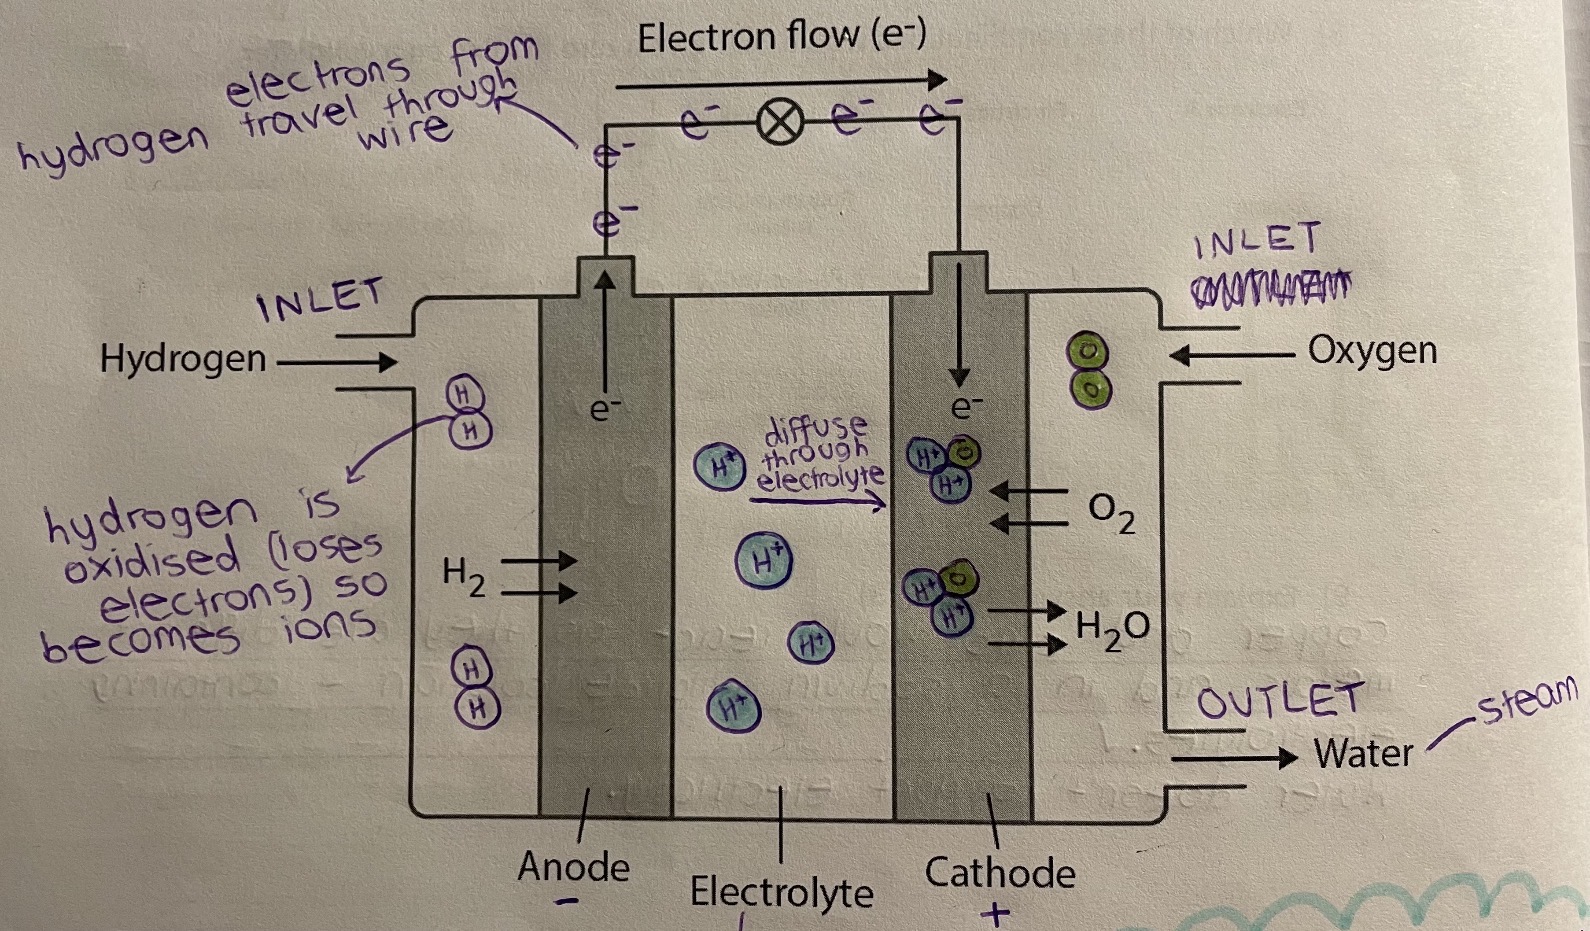 Electron flow (e⁻)
electrons from
hydrogen travel through
wire
e⁻ e⁻ e⁻
e⁻
e⁻
INLET
INLET
Hydrogen
Oxygen
H
H
O
O
e⁻
e⁻
diffuse
through
electrolyte
H⁺
H⁺ O
H⁺
O₂
hydrogen is
oxidised (loses
electrons) so
becomes ions
H₂
H⁺
H⁺ O
H⁺
H₂O
H⁺
H
H
H⁺
OUTLET
steam
Water
Anode
-
Electrolyte
Cathode
+